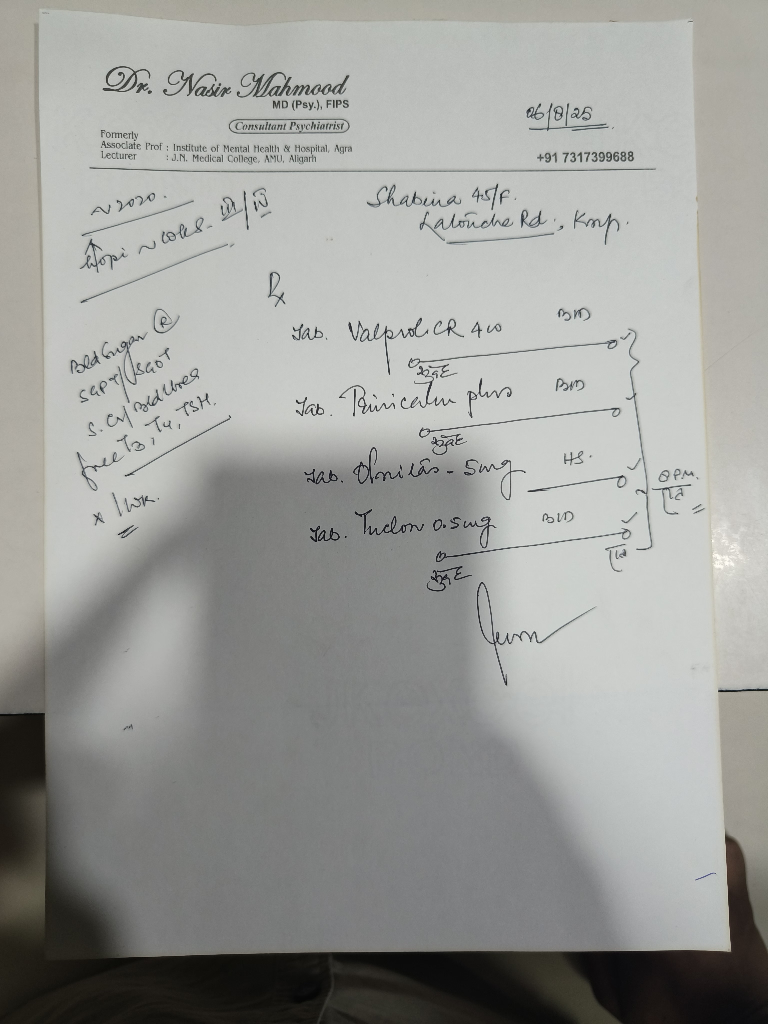 Dr. Nasir Mahmood
MD (Psy.), FIPS
Consultant Psychiatrist
Formerly
Associate Prof : Institute of Mental Health & Hospital, Agra
Lecturer : J.N. Medical College, AMU, Aligarh
06/8/25
+91 7317399688
~2020.
III/IV
Shabina 45/F.
Latouche Rd., Knp.
Rx
Bld Sugar (R)
SGPT/SGOT
S. Cr/Bld Urea
free T3, T4, TSH.
x 1 wk.
Tab. CR 400 BD
सुबह
Tab. plus BD
सुबह
Tab. - 5mg HS.
8 PM.
Tab. 0.5mg BD
सुबह